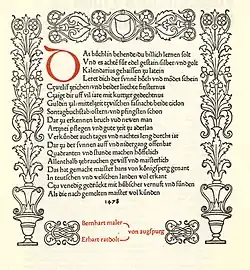 Das büchlin behende du billich lernen solt
Und es achte für edel gestain silber und golt
Kalendarius gehaissen zu latein
Leret dich der sunne höch und mödes schein
Zwelff zeichen und beider liechte finsternus
Zaigt dir uff vil iare mit kurtzer gedechtnus
Guldin zal mittelzeit zwischen fasnacht beide ciclen
Sontag buchstab ostern und pfingsten schon
Dar zu erkennen bruch und newen man
Artznei pflegen und gute zeit zu aderlan
Verkündet auch tages und nachtes leng durch iar
Dar zu der sunnen auff und nidergang offenbar
Quadranten und stunde machen höfflich
Allenthalb gebrauchen gewiß und maisterlich
Das hat gemacht maister hans von königsperg genant
In teutschen und welschen landen wol erkant
Czu venedig gedruckt mit hübscher vernufft und fünden
Als die nach gemelten maister wol künden
1478
Bernhart maler
von augspurg
Erhart ratdolt